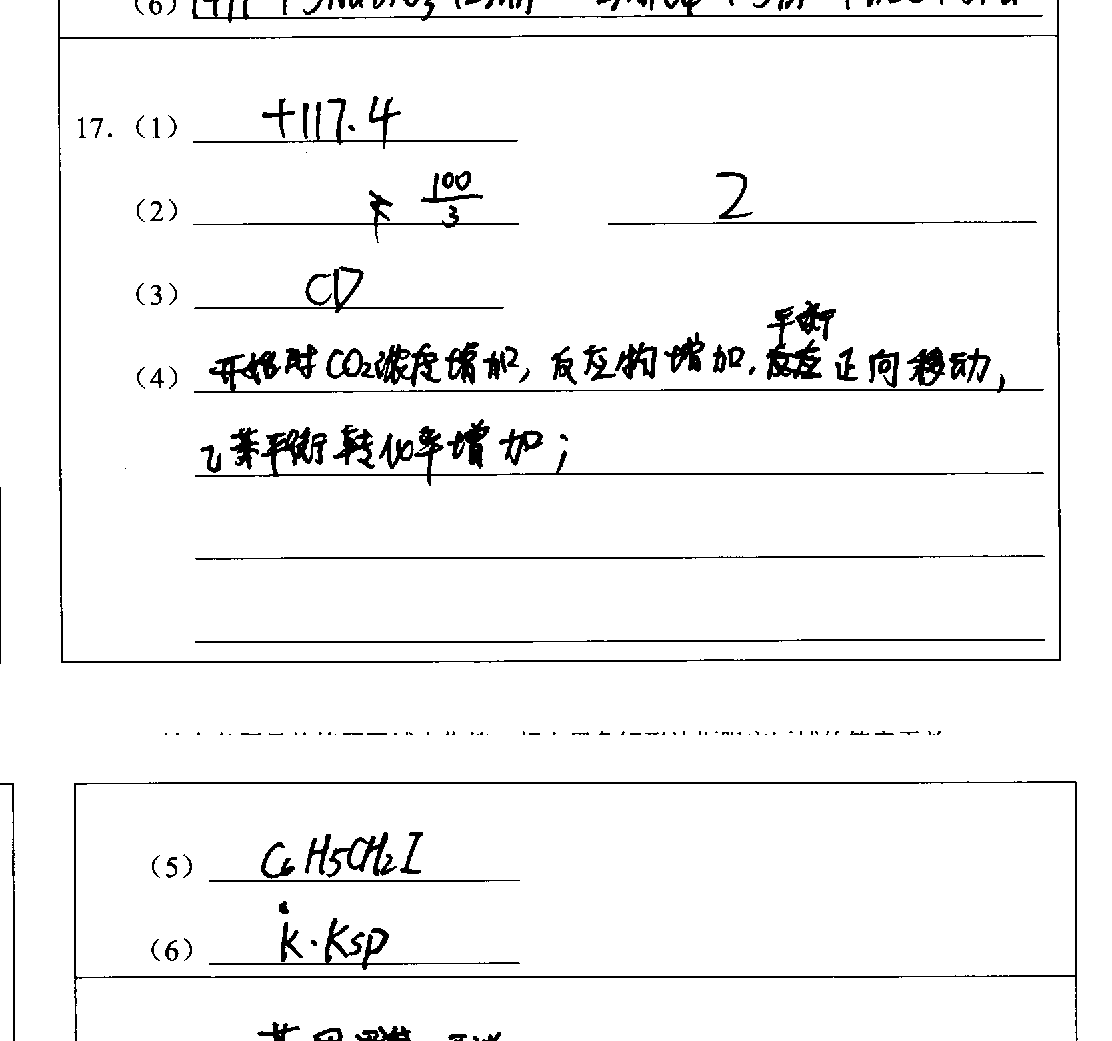 (6)
17. (1) +117.4
(2) 100/3 2
(3) CD
(4) 开始时CO₂浓度增加, 反应物增加, 平衡正向移动,
乙苯平衡转化率增加;
(5) C₆H₅CH₂I
(6) K·Ksp